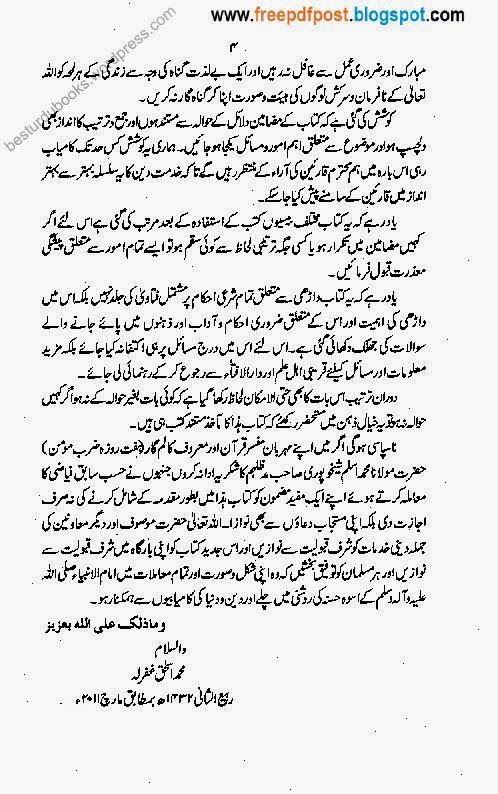 www.freepdfpost.blogspot.com
besturdubooks.wordpress.com
۴
مبارک اور ضروری عمل سے غافل نہ رہیں اور ایک بے لذت گناہ کی وجہ سے زندگی کے ہر لمحہ کو اللہ
تعالیٰ کے نافرمان و سرکش لوگوں کی ہیئت و صورت اپنا کر گناہ گار نہ کریں۔
کوشش کی گئی ہے کہ کتاب کے مضامین دلائل کے حوالہ سے مستند ہوں اور جمع و ترتیب کا انداز بھی
دلچسپ ہو اور موضوع سے متعلق اہم امور و مسائل یکجا ہو جائیں۔ ہماری یہ کوشش کس حد تک کامیاب
رہی اس بارہ میں ہم محترم قارئین کی آراء کے منتظر رہیں گے تاکہ خدمت دین کا یہ سلسلہ بہتر سے بہتر
انداز میں قارئین کے سامنے پیش کیا جا سکے۔
یاد رہے کہ یہ کتاب مختلف بیسیوں کتب کے استفادہ کے بعد مرتب کی گئی ہے اس لئے اگر
کہیں مضامین میں تکرار ہو یا کسی جگہ ترتیبی لحاظ سے کوئی سقم ہو تو ایسے تمام امور سے متعلق پیشگی
معذرت قبول فرمائیں۔
یاد رہے کہ یہ کتاب داڑھی سے متعلق تمام شرعی احکام پر مشتمل فتاویٰ کی جلد نہیں بلکہ اس میں
داڑھی کی اہمیت اور اس کے متعلق ضروری احکام و آداب اور ذہنوں میں پائے جانے والے
سوالات کی جھلک دکھائی گئی ہے۔ اس لئے اس میں درج مسائل پر ہی اکتفا نہ کیا جائے بلکہ مزید
معلومات اور مسائل کیلئے قریبی اہل علم اور دارالافتاء سے رجوع کر کے رہنمائی لی جائے۔
دوران ترتیب اس بات کا بھی حتی الامکان لحاظ رکھا گیا ہے کہ کوئی بات بغیر حوالہ کے نہ ہو اگر کہیں
حوالہ نہ ہو تو یہ خیال ذہن میں مستحضر رکھئے کہ کتاب ہذا کا مآخذ مستند کتب ہی ہیں۔
ناسپاسی ہو گی اگر میں اپنے مہربان مفسر قرآن اور معروف کالم نگار (ہفت روزہ ضرب مؤمن)
حضرت مولانا محمد اسلم شیخوپوری صاحب مدظلہم کا شکریہ ادا نہ کروں جنہوں نے حسب سابق فیاضی کا
معاملہ کرتے ہوئے اپنے ایک مفید مضمون کو کتاب ہذا میں بطور مقدمہ کے شامل کرنے کی نہ صرف
اجازت دی بلکہ اپنی مستجاب دعاؤں سے بھی نوازا۔ اللہ تعالیٰ حضرت موصوف اور دیگر معاونین کی
جملہ دینی خدمات کو شرف قبولیت سے نوازیں اور اس جدید کتاب کو اپنی بارگاہ میں شرف قبولیت سے
نوازیں اور ہر مسلمان کو توفیق بخشیں کہ وہ اپنی شکل و صورت اور تمام معاملات میں امام الانبیاء صلی اللہ
علیہ وآلہ وسلم کے اسوہ حسنہ کی روشنی میں چلے اور دین و دنیا کی کامیابیوں سے ہمکنار ہو۔
وماذلک علی اللہ بعزیز
والسلام
محمد اسحٰق غفرلہ
ربیع الثانی ۱۴۳۲ھ بمطابق مارچ ۲۰۱۱ء